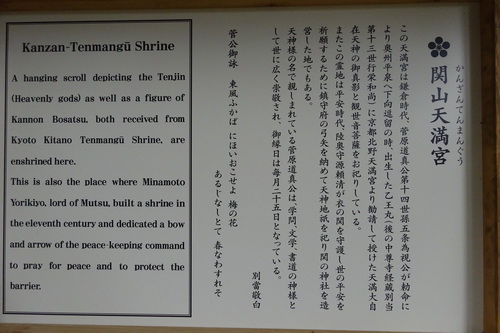 Kanzan-Tenmangū Shrine
A hanging scroll depicting the Tenjin
(Heavenly gods) as well as a figure of
Kannon Bosatsu, both received from
Kyoto Kitano Tenmangū Shrine, are
enshrined here.
This is also the place where Minamoto
Yorikiyo, lord of Mutsu, built a shrine in
the eleventh century and dedicated a bow
and arrow of the peace-keeping command
to pray for peace and to protect the
barrier.
かんざんてんまんぐう
関山天満宮
この天満宮は鎌倉時代、菅原道真公第十四世孫五条為視公が勅命に
より奥州平泉へ下向逗留の時、出生した乙王丸(後の中尊寺経蔵別当
第十三世行栄和尚)に京都北野天満宮より勧請して授けた天満大自
在天神の御真影と観世音菩薩をお祀りしている。
またこの霊地は平安時代、陸奥守源頼清が衣の関を守護し世の平安を
祈願するために鎮守府の弓矢を納めて天神地祇を祀り関の神社を造
営した地でもある。
天神様の名で親しまれている菅原道真公は、学問、文学、書道の神様と
して世に広く崇敬され、御縁日は毎月二十五日となっている。
別當敬白
菅公御詠 東風ふかば にほいおこせよ 梅の花
あるじなしとて 春なわすれそ